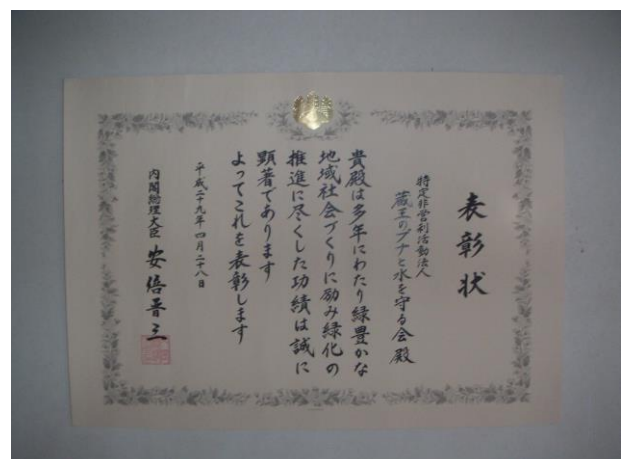 表彰状
特定非営利活動法人
蔵王のブナと水を守る会殿
貴殿は多年にわたり緑豊かな
地域社会づくりに励み緑化の
推進に尽くした功績は誠に
顕著であります
よってこれを表彰します
平成二十九年四月二十八日
内閣総理大臣 安倍晋三